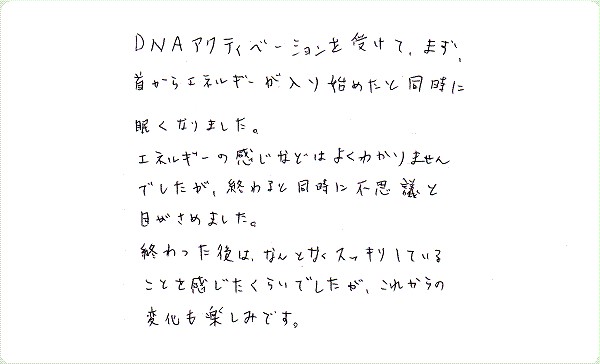 DNAアクティベーションを受けて、まず、
首からエネルギーが入り始めたと同時に
眠くなりました。
エネルギーの感じなどはよくわかりません
でしたが、終わると同時に不思議と
目がさめました。
終わった後は、なんとなくスッキリしている
ことを感じたくらいでしたが、これからの
変化も楽しみです。